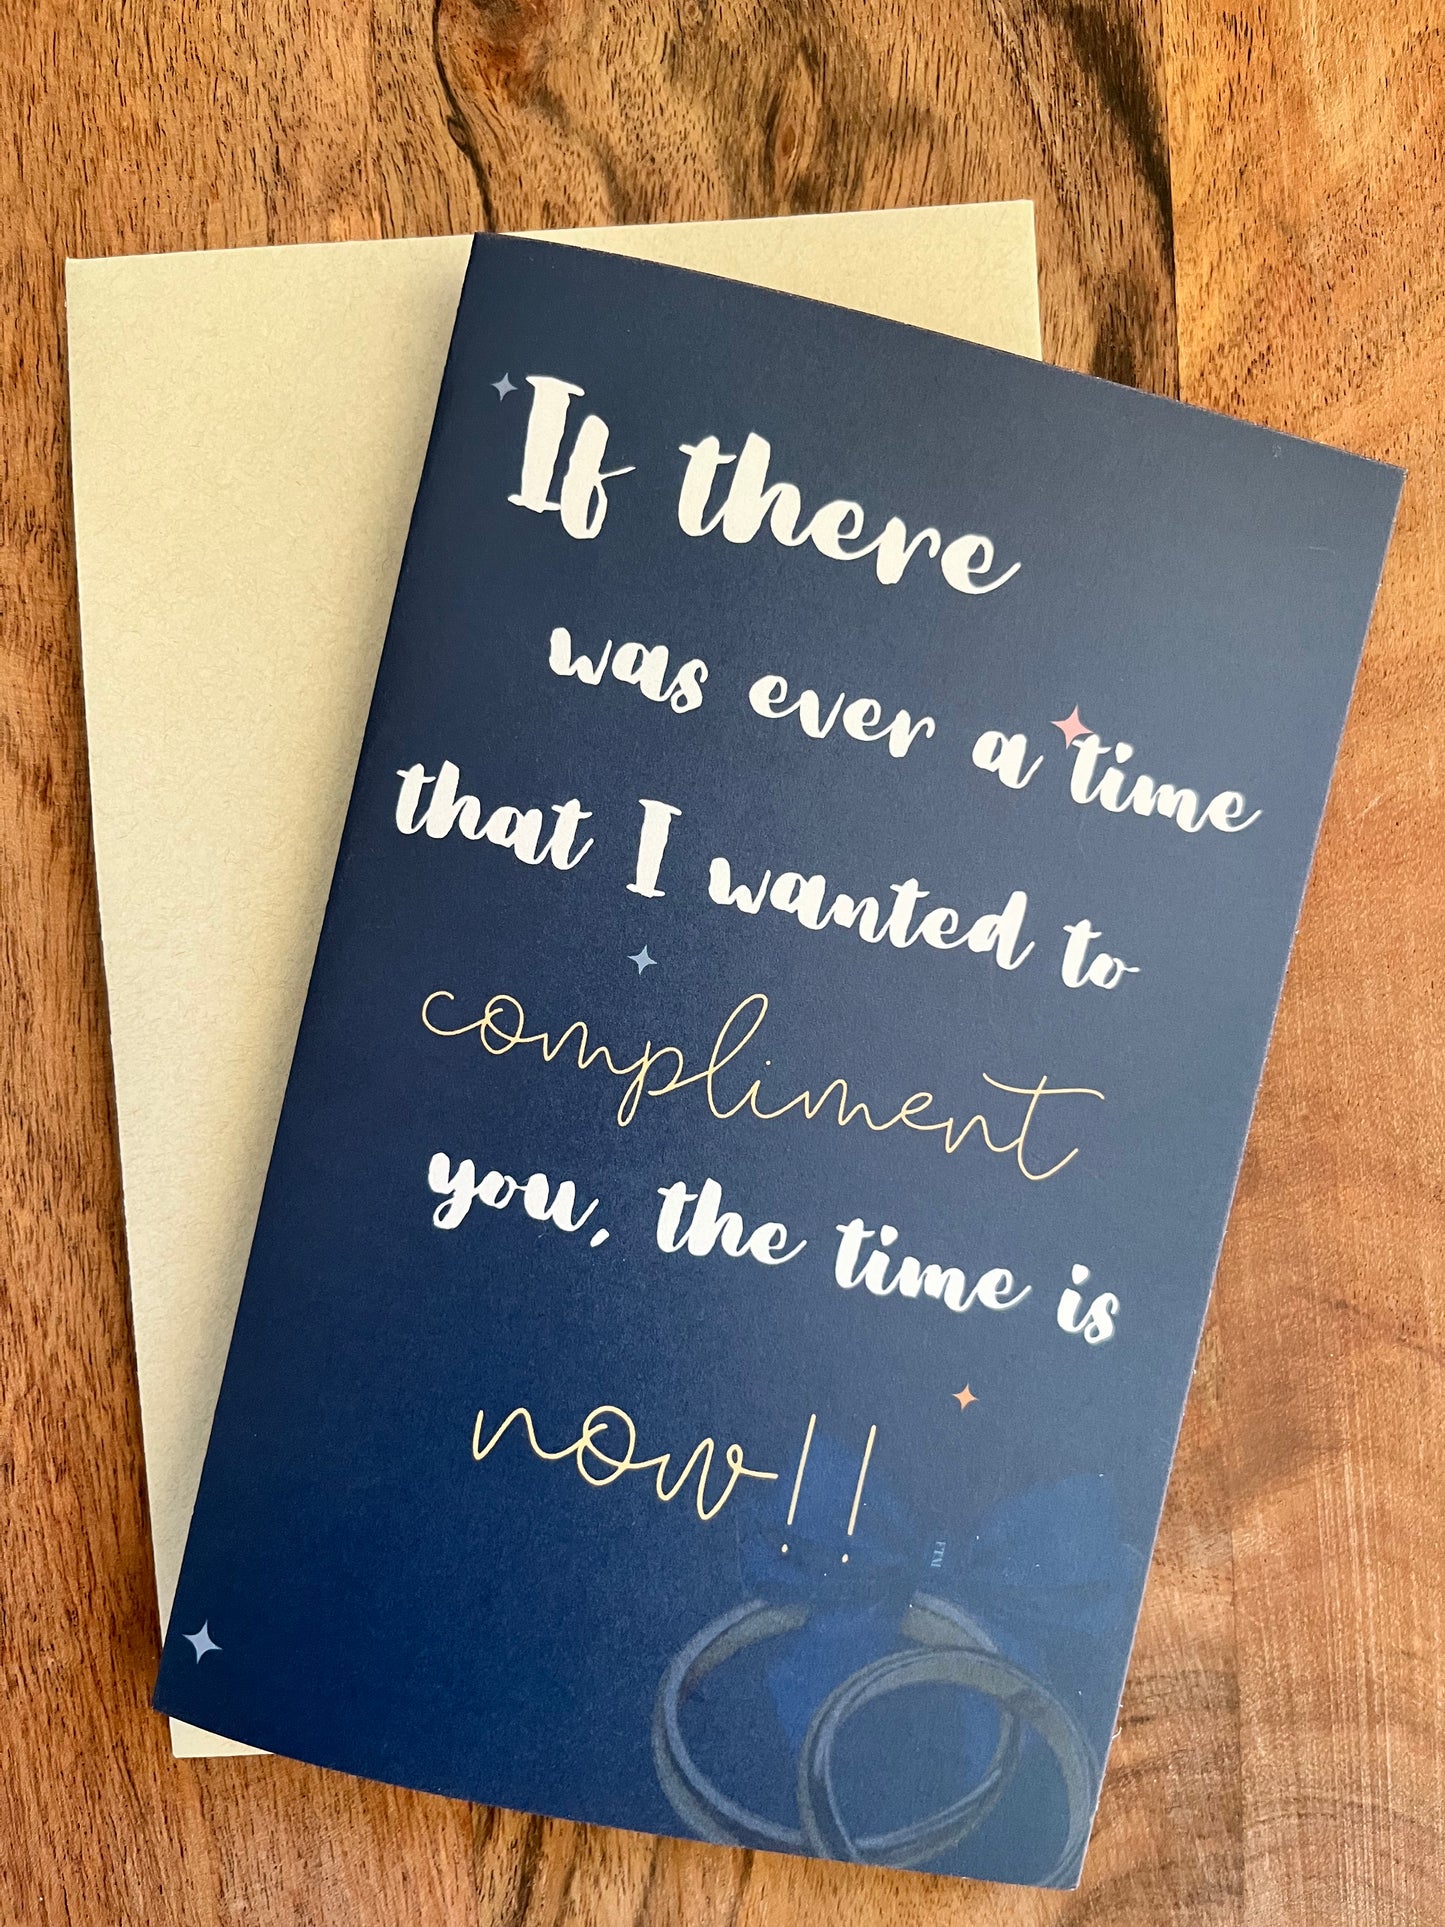 If there
was ever a time
that I wanted to
compliment
you, the time is
now!!